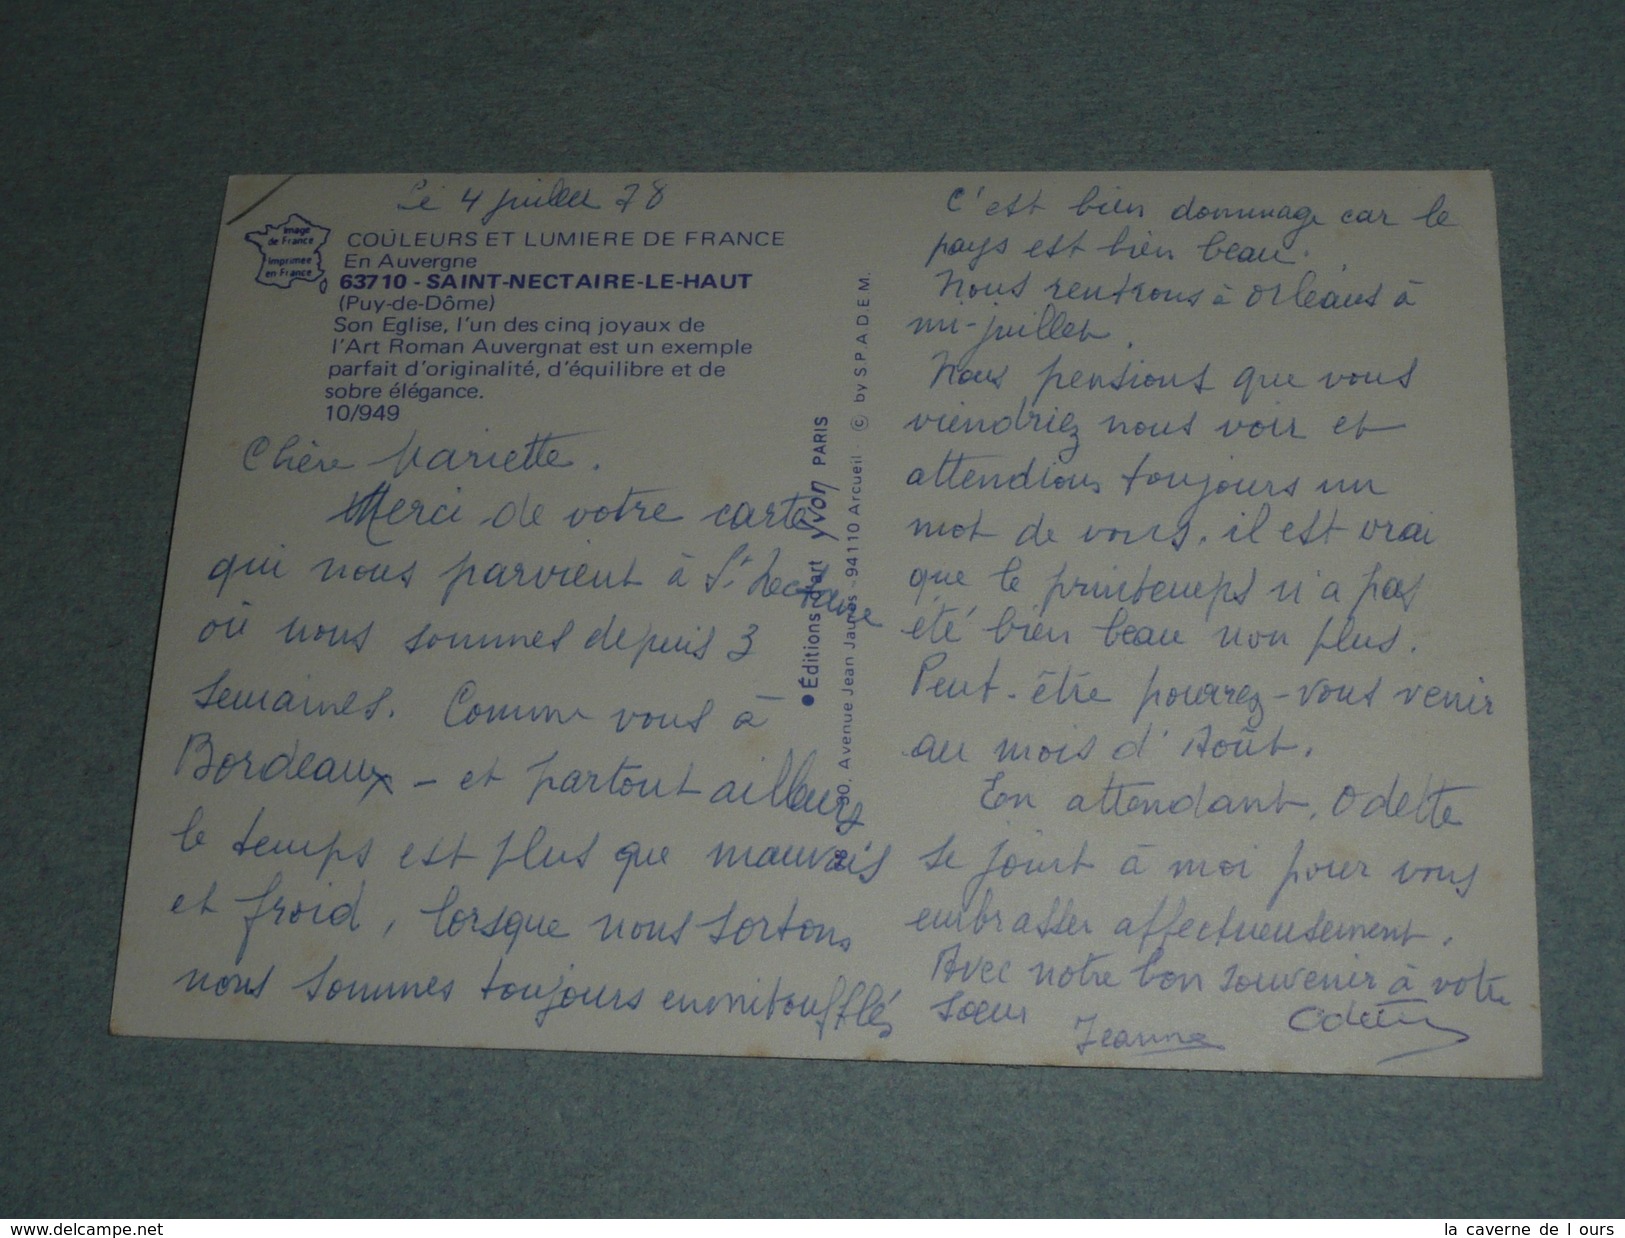 Le 4 juillet 78
Image
de France
Imprimée
en France
COULEURS ET LUMIERE DE FRANCE
En Auvergne
63710 - SAINT-NECTAIRE-LE-HAUT
(Puy-de-Dôme)
Son Eglise, l'un des cinq joyaux de
l'Art Roman Auvergnat est un exemple
parfait d'originalité, d'équilibre et de
sobre élégance.
10/949
Chère Mariette.
Merci de votre carte
qui nous parvient à St Nectaire
où nous sommes depuis 3
semaines. Comme vous à
Bordeaux - et partout ailleurs
le temps est plus que mauvais
et froid, lorsque nous sortons
nous sommes toujours emmitoufflés
● Éditions d'art yvon PARIS
90, Avenue Jean Jaurès - 94110 Arcueil © by S.P.A.D.E.M.
C'est bien dommage car le
pays est bien beau.
Nous rentrons à Orléans à
mi-juillet.
Nous pensions que vous
viendriez nous voir et
attendions toujours un
mot de vous. il est vrai
que le printemps n'a pas
été bien beau non plus.
Peut-être pourrez-vous venir
au mois d'Août.
En attendant, Odette
se joint à moi pour vous
embrasser affectueusement.
Avec notre bon souvenir à votre
soeur
Jeanne Odette
www.delcampe.net
la caverne de l ours